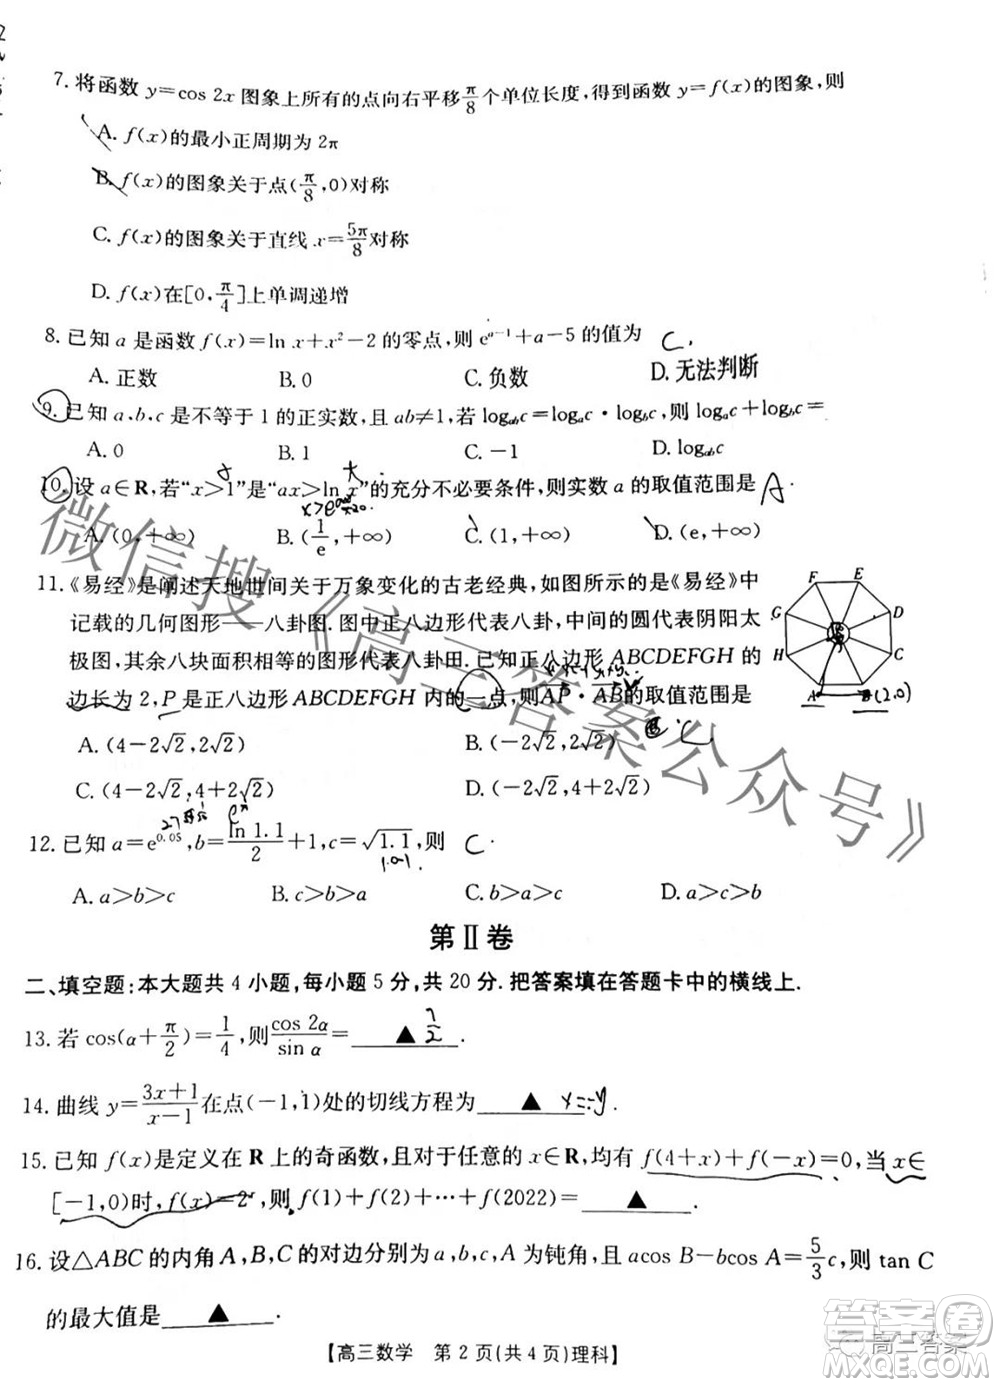 7. 将函数 y=cos 2x 图象上所有的点向右平移π/8个单位长度,得到函数 y=f(x)的图象,则
A. f(x)的最小正周期为 2π
B. f(x)的图象关于点(π/8,0)对称
C. f(x)的图象关于直线 x=5π/8对称
D. f(x)在[0,π/4]上单调递增
8. 已知 a 是函数 f(x)=ln x+x²-2 的零点,则 e^(a-1)+a-5 的值为 C.
A. 正数 B. 0 C. 负数 D. 无法判断
9. 已知 a,b,c 是不等于 1 的正实数,且 ab≠1,若 log_ab c=log_a c·log_b c,则 log_a c+log_b c=
A. 0 B. 1 C. -1 D. log_ab c
10. 设 a∈R,若“x>1”是“ax>ln x”的充分不必要条件,则实数 a 的取值范围是 A.
A. (0,+∞) B. (1/e,+∞) C. (1,+∞) D. (e,+∞)
11. 《易经》是阐述天地世间关于万象变化的古老经典,如图所示的是《易经》中
记载的几何图形——八卦图. 图中正八边形代表八卦,中间的圆代表阴阳太
极图,其余八块面积相等的图形代表八卦田. 已知正八边形 ABCDEFGH 的
边长为 2,P 是正八边形 ABCDEFGH 内的一点,则AP·AB的取值范围是
F E
G D
H C
A B(2,0)
C
A. (4-2√2,2√2) B. (-2√2,2√2)
C. (4-2√2,4+2√2) D. (-2√2,4+2√2)
12. 已知 a=e^0.05,b=ln 1.1/2+1,c=√1.1,则 C.
A. a>b>c B. c>b>a C. b>a>c D. a>c>b
第Ⅱ卷
二、填空题:本大题共 4 小题,每小题 5 分,共 20 分. 把答案填在答题卡中的横线上.
13. 若 cos(α+π/2)=1/4,则cos 2α/sin α=▲ 7/2.
14. 曲线 y=(3x+1)/(x-1)在点(-1,1)处的切线方程为 ▲ x=-y.
15. 已知 f(x)是定义在 R 上的奇函数,且对于任意的 x∈R,均有 f(4+x)+f(-x)=0,当 x∈
[-1,0)时,f(x)=2ˣ,则 f(1)+f(2)+…+f(2022)= ▲ .
16. 设△ABC 的内角 A,B,C 的对边分别为 a,b,c,A 为钝角,且 acos B-bcos A=5/3c,则 tan C
的最大值是 ▲ .
【高三数学 第 2 页(共 4 页)理科】
微信搜《高三答案公众号》
答案圈
高三答案
MXQE.COM